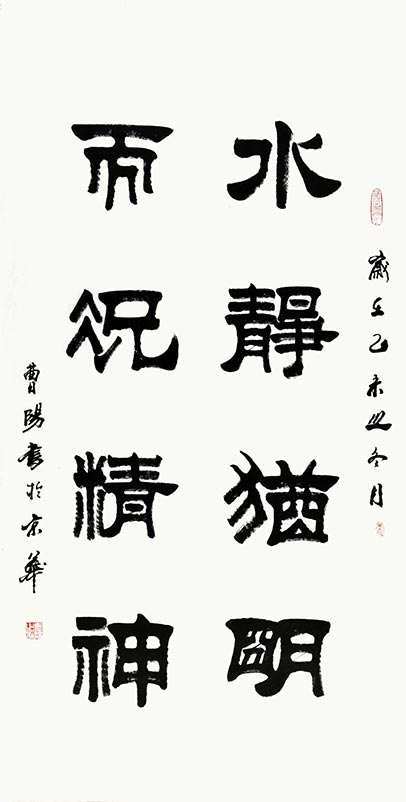 歲在乙未之冬月
水靜猶朙
而况精神
曹陽書於京華